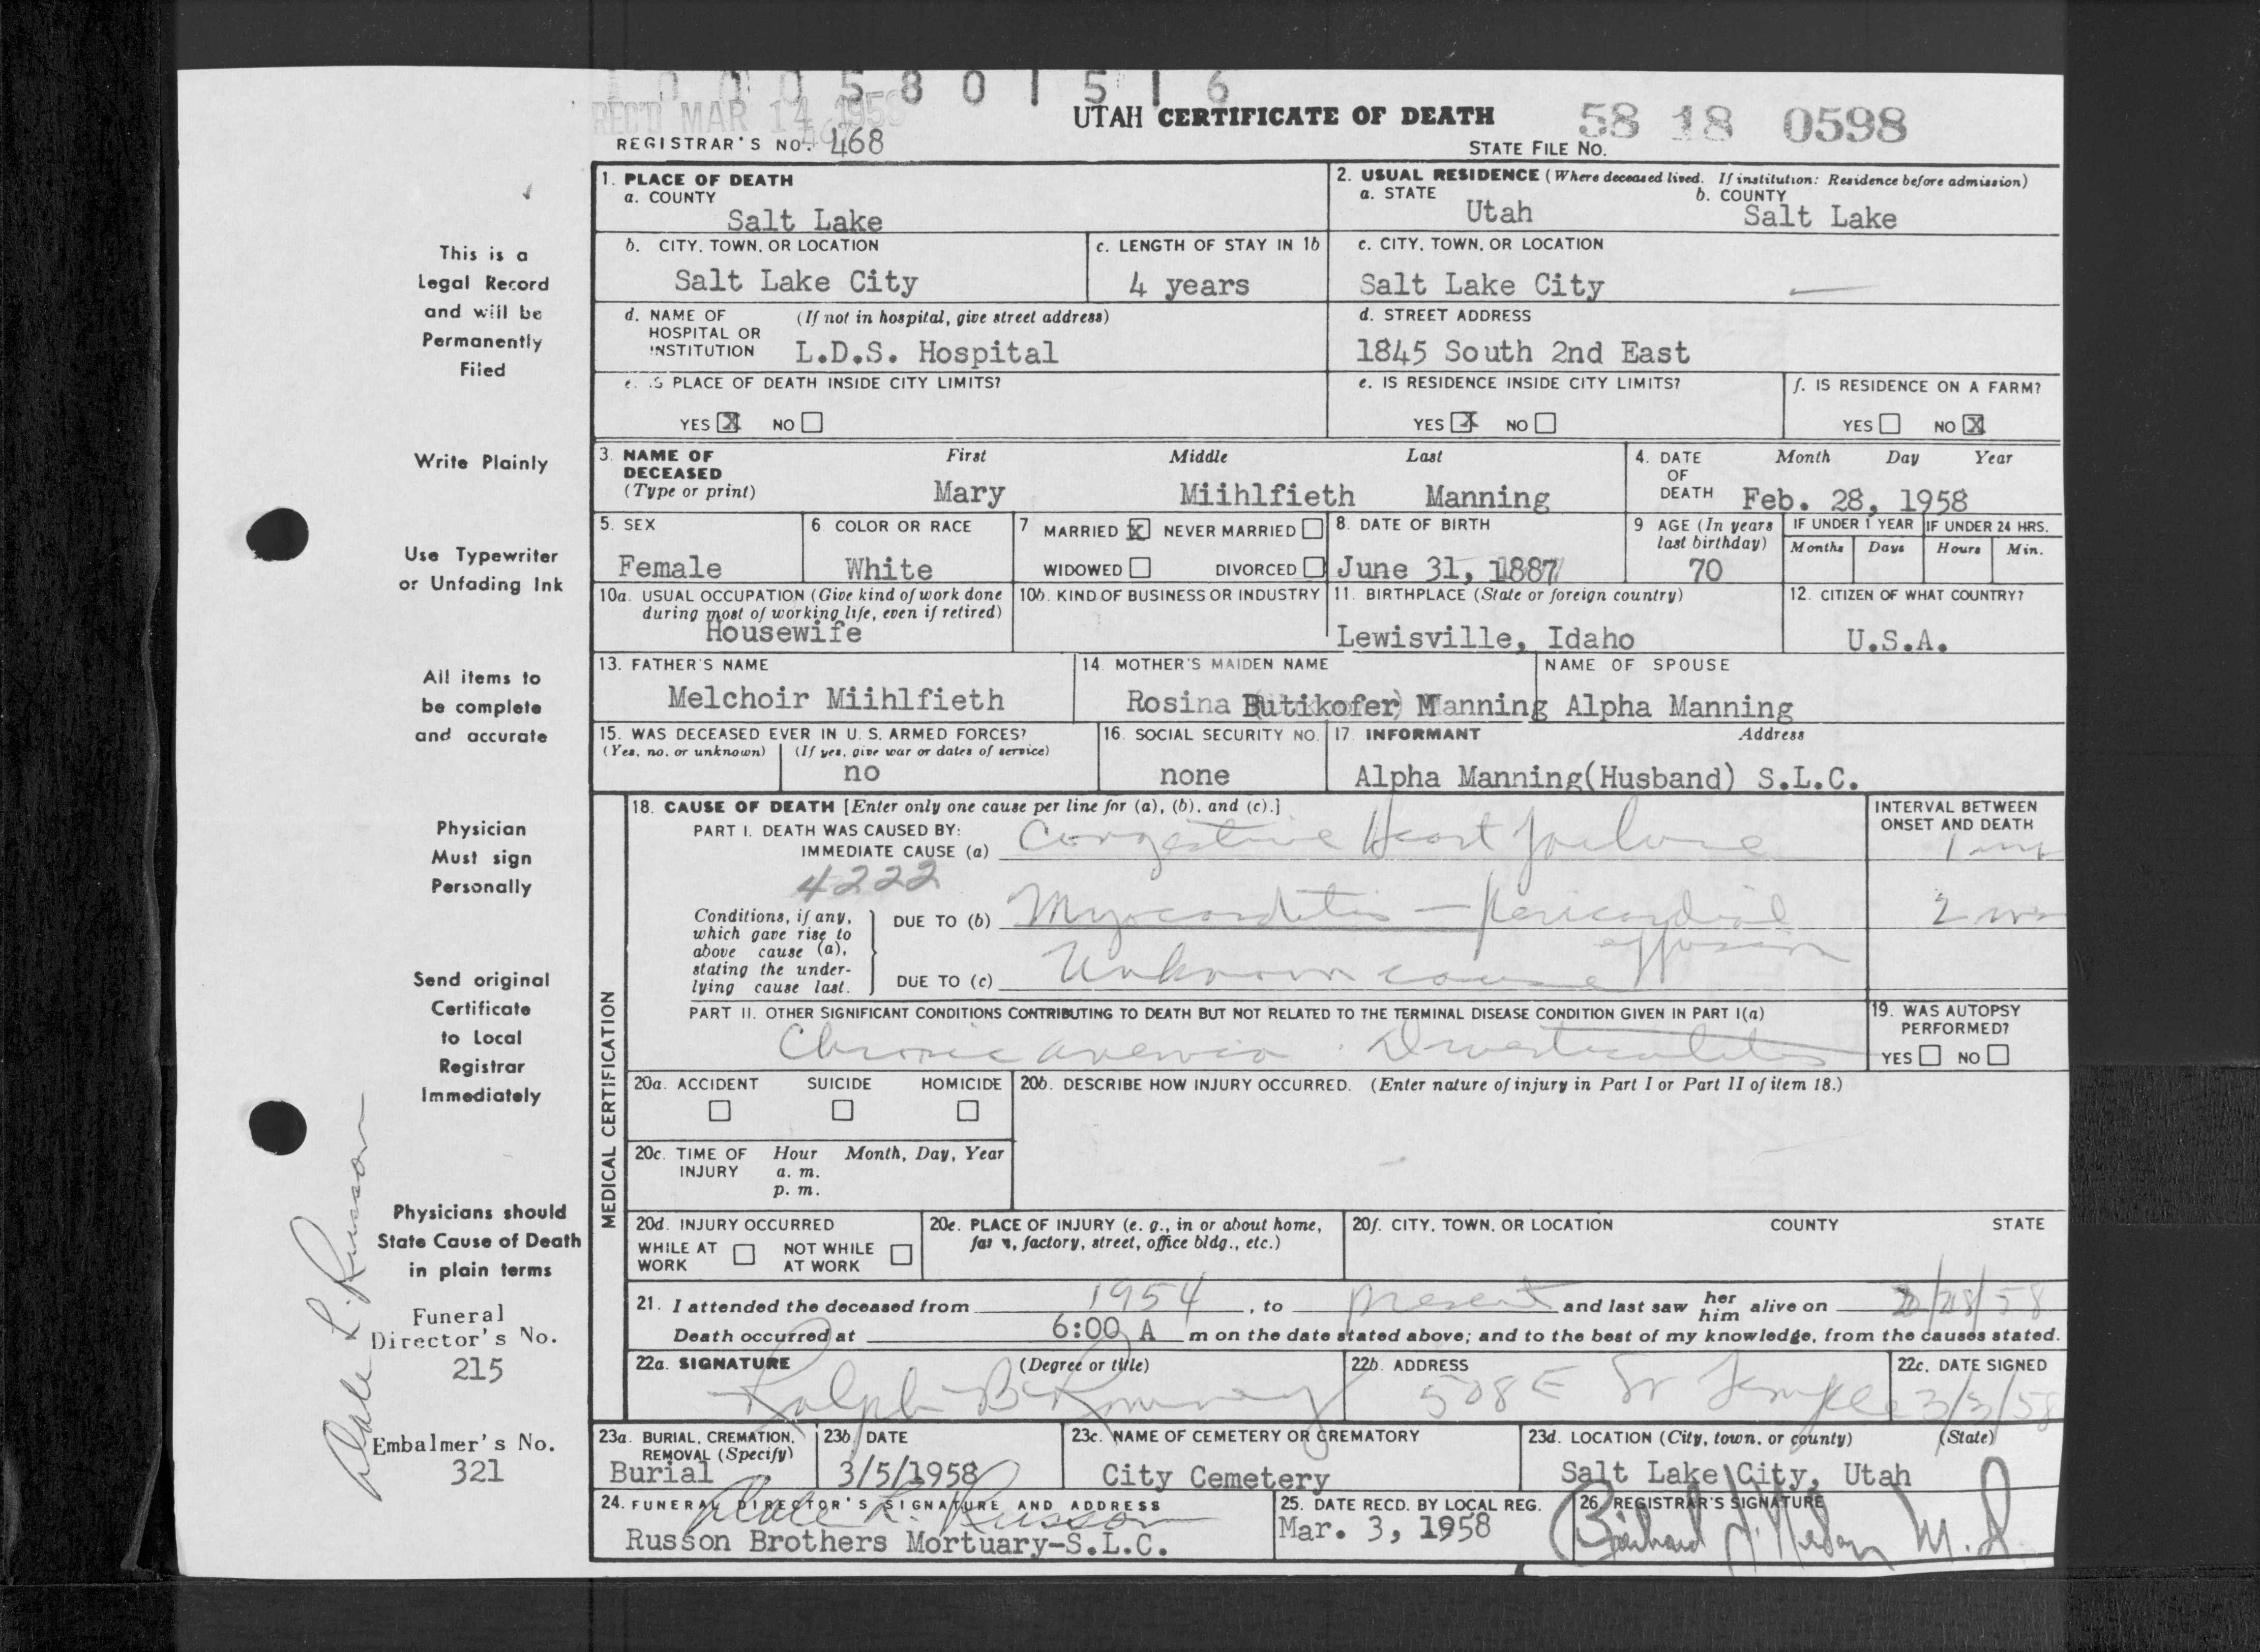 1 0 0 0 5 8 0 1 5 1 6
REC'D MAR 14 1958
UTAH CERTIFICATE OF DEATH
58 18 0598
REGISTRAR'S NO. 468
STATE FILE NO.
1. PLACE OF DEATH
a. COUNTY
Salt Lake
2. USUAL RESIDENCE (Where deceased lived. If institution: Residence before admission)
a. STATE b. COUNTY
Utah Salt Lake
b. CITY, TOWN, OR LOCATION
Salt Lake City
c. LENGTH OF STAY IN 1b
4 years
c. CITY, TOWN, OR LOCATION
Salt Lake City
d. NAME OF (If not in hospital, give street address)
HOSPITAL OR
INSTITUTION L.D.S. Hospital
d. STREET ADDRESS
1845 South 2nd East
e. IS PLACE OF DEATH INSIDE CITY LIMITS?
YES X NO
e. IS RESIDENCE INSIDE CITY LIMITS?
YES X NO
f. IS RESIDENCE ON A FARM?
YES NO X
3. NAME OF First Middle Last
DECEASED
(Type or print) Mary Miihlfieth Manning
4. DATE Month Day Year
OF
DEATH Feb. 28, 1958
5. SEX
Female
6. COLOR OR RACE
White
7 MARRIED X NEVER MARRIED
WIDOWED DIVORCED
8. DATE OF BIRTH
June 31, 1887
9 AGE (In years
last birthday)
70
IF UNDER 1 YEAR
Months Days
IF UNDER 24 HRS.
Hours Min.
10a. USUAL OCCUPATION (Give kind of work done
during most of working life, even if retired)
Housewife
10b. KIND OF BUSINESS OR INDUSTRY
11. BIRTHPLACE (State or foreign country)
Lewisville, Idaho
12. CITIZEN OF WHAT COUNTRY?
U.S.A.
13. FATHER'S NAME
Melchoir Miihlfieth
14. MOTHER'S MAIDEN NAME
Rosina Butikofer Manning
NAME OF SPOUSE
Alpha Manning
15. WAS DECEASED EVER IN U. S. ARMED FORCES?
(Yes, no, or unknown) (If yes, give war or dates of service)
no
16. SOCIAL SECURITY NO.
none
17. INFORMANT Address
Alpha Manning(Husband) S.L.C.
MEDICAL CERTIFICATION
18. CAUSE OF DEATH [Enter only one cause per line for (a), (b), and (c).]
INTERVAL BETWEEN
ONSET AND DEATH
PART I. DEATH WAS CAUSED BY:
IMMEDIATE CAUSE (a) Congestive Heart failure
4222
Conditions, if any,
which gave rise to
above cause (a),
stating the under-
lying cause last.
DUE TO (b) Myocarditis - pericardial
effusion
DUE TO (c) Unknown cause
PART II. OTHER SIGNIFICANT CONDITIONS CONTRIBUTING TO DEATH BUT NOT RELATED TO THE TERMINAL DISEASE CONDITION GIVEN IN PART I(a)
Chronic anemia. Diverticulitis
19. WAS AUTOPSY
PERFORMED?
YES NO
20a. ACCIDENT SUICIDE HOMICIDE
20b. DESCRIBE HOW INJURY OCCURRED. (Enter nature of injury in Part I or Part II of item 18.)
20c. TIME OF Hour Month, Day, Year
INJURY a. m.
p. m.
20d. INJURY OCCURRED
WHILE AT NOT WHILE
WORK AT WORK
20e. PLACE OF INJURY (e. g., in or about home,
farm, factory, street, office bldg., etc.)
20f. CITY, TOWN, OR LOCATION COUNTY STATE
21. I attended the deceased from 1954, to present and last saw her him alive on 2/28/58
Death occurred at 6:00 A m on the date stated above; and to the best of my knowledge, from the causes stated.
22a. SIGNATURE (Degree or title)
Ralph B Romney
22b. ADDRESS
508 E So Temple
22c. DATE SIGNED
3/3/58
23a. BURIAL, CREMATION,
REMOVAL (Specify)
Burial
23b. DATE
3/5/1958
23c. NAME OF CEMETERY OR CREMATORY
City Cemetery
23d. LOCATION (City, town, or county) (State)
Salt Lake City, Utah
24. FUNERAL DIRECTOR'S SIGNATURE AND ADDRESS
Dale L. Russon
Russon Brothers Mortuary-S.L.C.
25. DATE RECD. BY LOCAL REG.
Mar. 3, 1958
26. REGISTRAR'S SIGNATURE
M.D.
This is a
Legal Record
and will be
Permanently
Filed
Write Plainly
Use Typewriter
or Unfading Ink
All items to
be complete
and accurate
Physician
Must sign
Personally
Send original
Certificate
to Local
Registrar
Immediately
Physicians should
State Cause of Death
in plain terms
Funeral
Director's No.
215
Embalmer's No.
321
Dale L. Russon